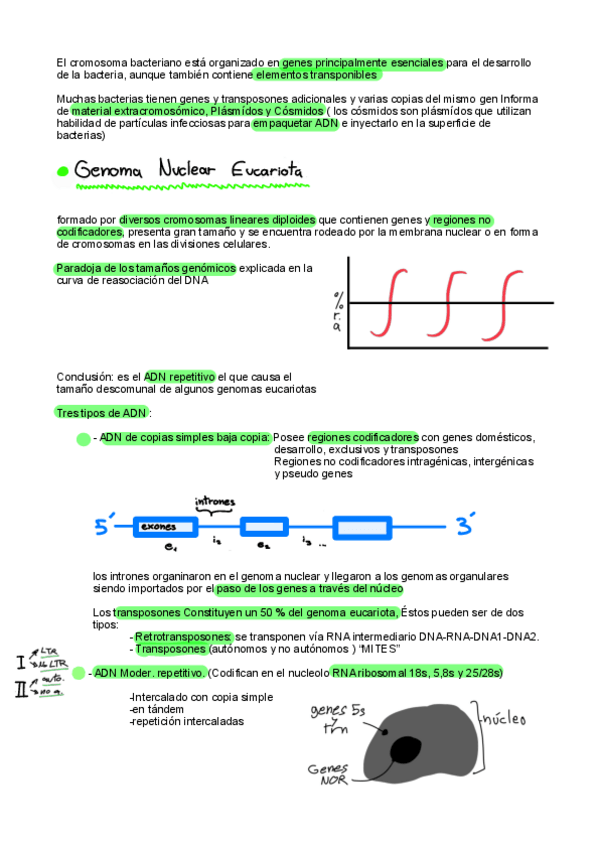 El cromosoma bacteriano está organizado en genes principalmente esenciales para el desarrollo
de la bacteria, aunque también contiene elementos transponibles
Muchas bacterias tienen genes y transposones adicionales y varias copias del mismo gen Informa
de material extracromosómico, Plásmídos y Cósmidos ( los cósmidos son plásmídos que utilizan
habilidad de partículas infecciosas para empaquetar ADN e inyectarlo en la superficie de
bacterias)
Genoma Nuclear Eucariota
formado por diversos cromosomas lineares diploides que contienen genes y regiones no
codificadores, presenta gran tamaño y se encuentra rodeado por la membrana nuclear o en forma
de cromosomas en las divisiones celulares.
Paradoja de los tamaños genómicos explicada en la
curva de reasociación del DNA
%
r.
a
Conclusión: es el ADN repetitivo el que causa el
tamaño descomunal de algunos genomas eucariotas
Tres tipos de ADN :
- ADN de copias simples baja copia: Posee regiones codificadores con genes domésticos,
desarrollo, exclusivos y transposones
Regiones no codificadores intragénicas, intergénicas
y pseudo genes
intrones
5´ exones 3´
e1 i2 e2 i3 ...
los intrones organinaron en el genoma nuclear y llegaron a los genomas organulares
siendo importados por el paso de los genes a través del núcleo
Los transposones Constituyen un 50 % del genoma eucariota, Éstos pueden ser de dos
tipos:
- Retrotransposones: se transponen vía RNA intermediario DNA-RNA-DNA1-DNA2.
- Transposones (autónomos y no autónomos ) “MITES”
I LTR
No LTR
II auto.
no a.
- ADN Moder. repetitivo. (Codifican en el nucleolo RNA ribosomal 18s, 5,8s y 25/28s)
-Intercalado con copia simple
-en tándem
-repetición intercaladas
genes 5s
y
trn
núcleo
Genes
NOR